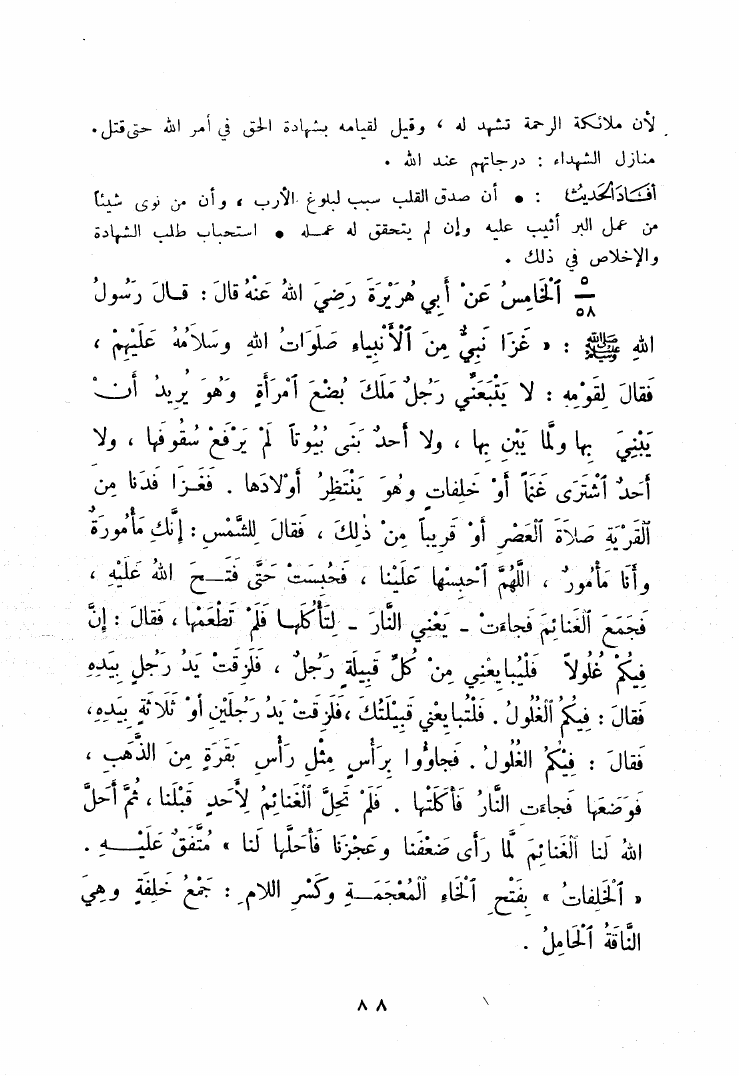 لأن ملائكة الرحمة تشهد له ، وقيل لقيامه بشهادة الحق في أمر الله حتى قتل.
منازل الشهداء : درجاتهم عند الله .
أفاد الحديث : • أن صدق القلب سبب لبلوغ الأرب ، وأن من نوى شيئاً
من عمل البر أثيب عليه وإن لم يتحقق له عمله • استحباب طلب الشهادة
والإخلاص في ذلك .
٥/٥٨ ٱلْخَامِسُ عَنْ أَبِي هُرَيْرَةَ رَضِيَ اللهُ عَنْهُ قَالَ : قَالَ رَسُولُ
اللهِ ﷺ : « غَزَا نَبِيٌّ مِنَ ٱلْأَنْبِيَاءِ صَلَوَاتُ اللهِ وَسَلَامُهُ عَلَيْهِمْ ،
فَقَالَ لِقَوْمِهِ : لا يَتْبَعَنِّي رَجُلٌ مَلَكَ بُضْعَ ٱمْرَأَةٍ وَهُوَ يُرِيدُ أَنْ
يَبْنِيَ بِها وَلَمَّا يَبْنِ بِها ، ولا أَحَدٌ بَنَى بُيُوتاً لَمْ يَرْفَعْ سُقُوفَها ، ولا
أَحَدٌ ٱشْتَرَى غَنَماً أَوْ خَلِفاتٍ وهُوَ يَنْتَظِرُ أَوْلادَها . فَغَزا فَدَنا مِنَ
ٱلْقَرْيَةِ صَلاةَ ٱلْعَصْرِ أَوْ قَرِيباً مِنْ ذٰلِكَ ، فَقالَ لِلشَّمْسِ : إِنَّكِ مَأْمُورَةٌ
وأَنا مَأْمُورٌ ، اللَّهُمَّ ٱحْبِسْها عَلَيْنا ، فَحُبِسَتْ حَتَّى فَتَحَ اللهُ عَلَيْهِ ،
فَجَمَعَ ٱلْغَنائِمَ فَجاءَتْ - يَعْنِي النَّارَ - لِتَأْكُلَها فَلَمْ تَطْعَمْها ، فَقالَ : إِنَّ
فِيكُمْ غُلُولاً فَلْيُبايِعْنِي مِنْ كُلِّ قَبِيلَةٍ رَجُلٌ ، فَلَزِقَتْ يَدُ رَجُلٍ بِيَدِهِ
فَقالَ : فِيكُمُ ٱلْغُلُولُ . فَلْتُبايِعْنِي قَبِيلَتُكَ ، فَلَزِقَتْ يَدُ رَجُلَيْنِ أَوْ ثَلاثَةٍ بِيَدِهِ ،
فَقالَ : فِيكُمُ الْغُلُولُ . فَجاؤُوا بِرَأْسٍ مِثْلِ رَأْسِ بَقَرَةٍ مِنَ الذَّهَبِ ،
فَوَضَعَها فَجاءَتِ النَّارُ فَأَكَلَتْها . فَلَمْ تَحِلَّ ٱلْغَنائِمُ لِأَحَدٍ قَبْلَنا ، ثُمَّ أَحَلَّ
اللهُ لَنا ٱلْغَنائِمَ لَمَّا رَأَى ضَعْفَنا وعَجْزَنا فَأَحَلَّها لَنا » مُتَّفَقٌ عَلَيْهِ .
« ٱلْخَلِفاتُ » بِفَتْحِ ٱلْخَاءِ ٱلْمُعْجَمَةِ وكَسْرِ اللامِ : جَمْعُ خَلِفَةٍ وهِيَ
النَّاقَةُ ٱلْحَامِلُ .
٨٨